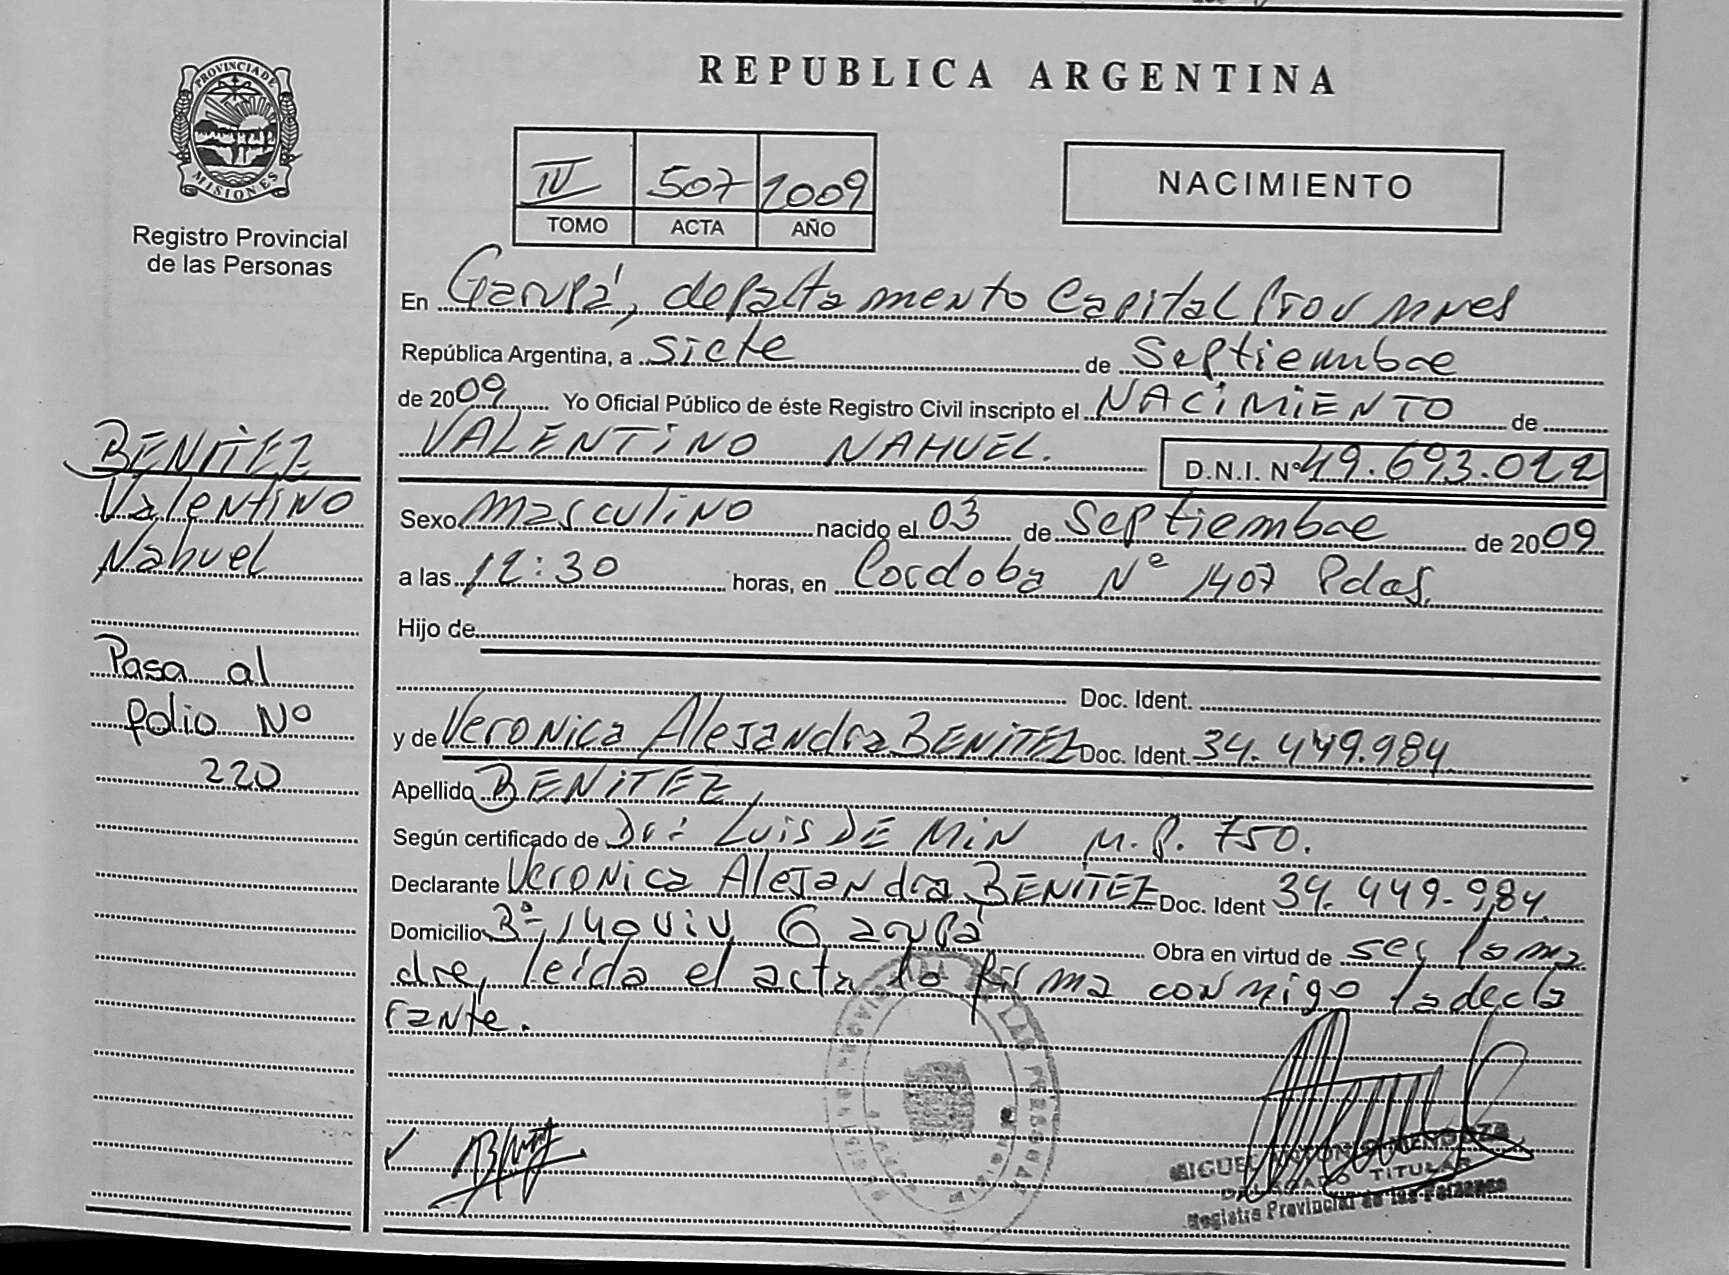 PROVINCIA DE
MISIONES
Registro Provincial
de las Personas
BENITEZ
Valentino
Nahuel
Pasa al
folio Nº
220
REPUBLICA ARGENTINA
IV 507 2009
TOMO ACTA AÑO
NACIMIENTO
En Garupá, departamento Capital Prov mnes
República Argentina, a siete de Septiembre
de 2009 Yo Oficial Público de éste Registro Civil inscripto el NACIMIENTO de
VALENTINO NAHUEL. D.N.I. Nº 49.693.022
Sexo masculino nacido el 03 de Septiembre de 2009
a las 12:30 horas, en Cordoba Nº 1407 Pdas.
Hijo de
Doc. Ident.
y de Veronica Alejandra BENITEZ Doc. Ident. 34.449.984
Apellido BENITEZ,
Según certificado de Dr: Luis DE MiN M.P. 750.
Declarante Veronica Alejandra BENITEZ Doc. Ident 34.449.984
Domicilio Bº 140 viv Garupá Obra en virtud de ser la ma
dre, leída el acta la firma conmigo la decla
rante.
MIGUEL MENDOZA
DELEGADO TITULAR
Registro Provincial de las Personas